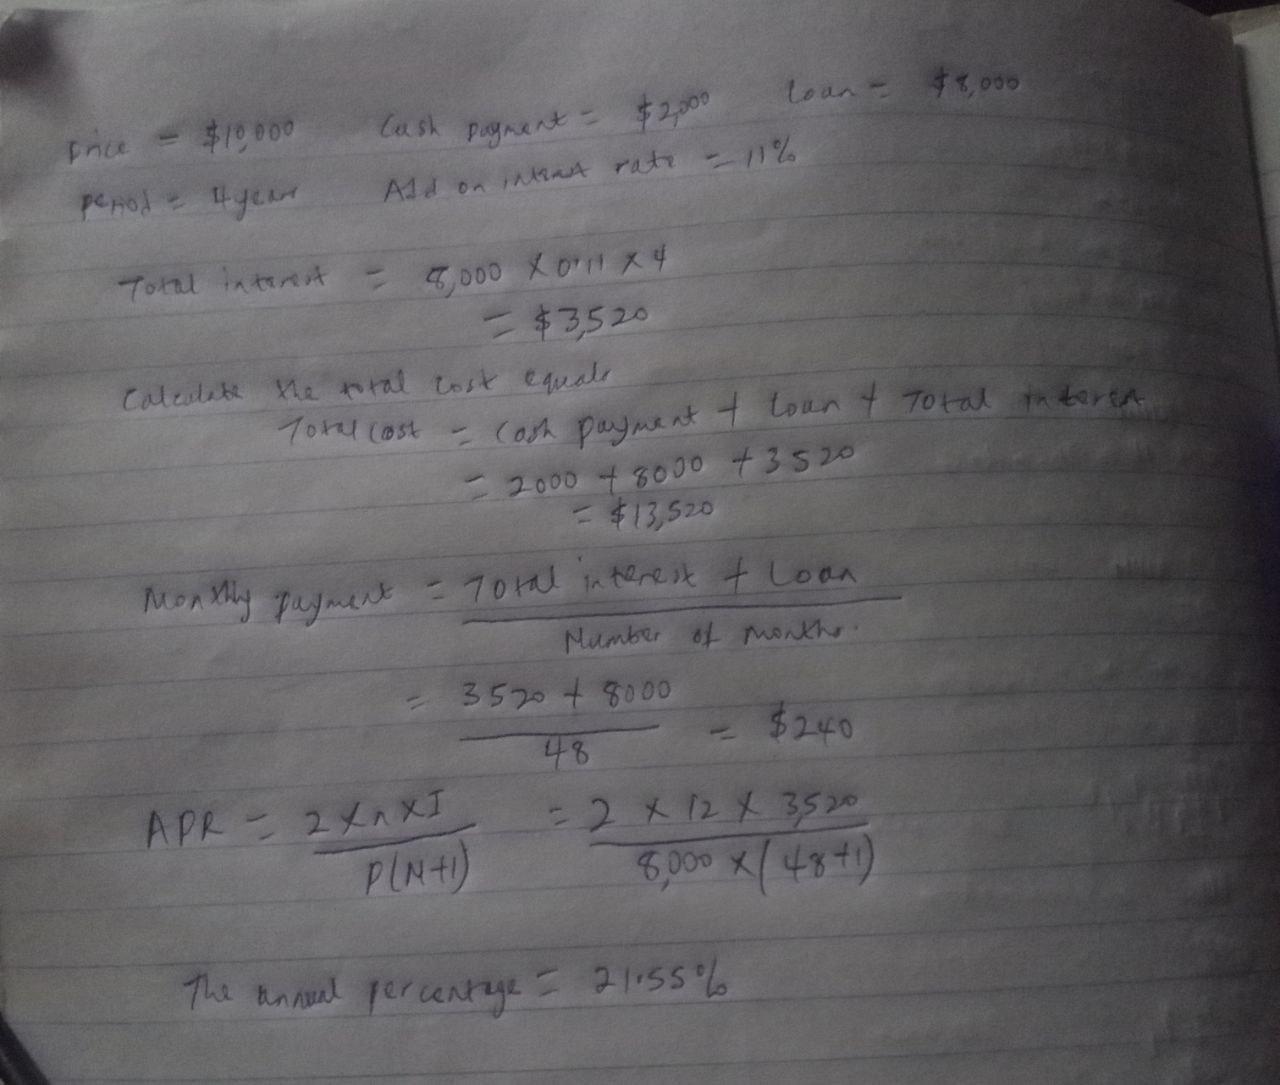 Price = $10,000 Cash payment = $2,000 Loan = $8,000
period = 4 years Add on interest rate = 11%
Total interest = 8,000 x 0.11 x 4
= $3,520
Calculate the total cost equals
Total cost = Cash payment + Loan + Total interest
= 2000 + 8000 + 3520
= $13,520
Monthly payment = Total interest + Loan
Number of months.
= 3520 + 8000
48
= $240
APR = 2 x n x I = 2 x 12 x 3,520
P(N+1) 8,000 x (48+1)
The annual percentage = 21.55%